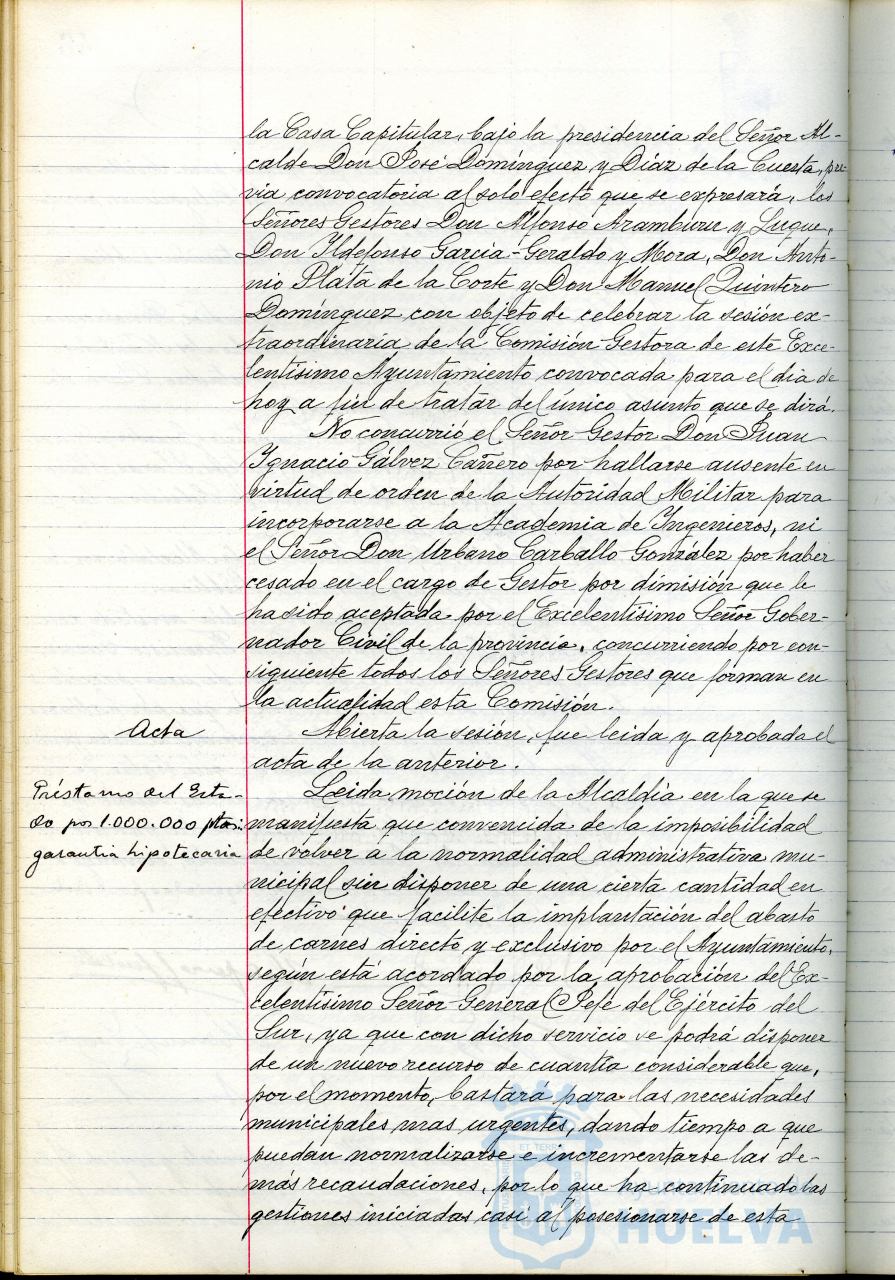 la Casa Capitular, bajo la presidencia del Señor Al-
calde Don José Domínguez y Díaz de la Cuesta, pre-
via convocatoria al solo efecto que se expresará, los
Señores Gestores Don Alfonso Aramburu y Luque,
Don Ildefonso García-Geraldo y Mora, Don Anto-
nio Plata de la Corte y Don Manuel Quintero
Domínguez con objeto de celebrar la sesión ex-
traordinaria de la Comisión Gestora de este Exce-
lentísimo Ayuntamiento convocada para el dia de
hoy a fin de tratar del único asunto que se dirá.
No concurrió el Señor Gestor Don Juan
Ignacio Gálvez Cañero por hallarse ausente en
virtud de orden de la Autoridad Militar para
incorporarse a la Academia de Ingenieros, ni
el Señor Don Urbano Carballo González por haber
cesado en el cargo de Gestor por dimisión que le
ha sido aceptada por el Excelentísimo Señor Gober-
nador Civil de la provincia, concurriendo por con-
siguiente todos los Señores Gestores que forman en
la actualidad esta Comisión.
Acta
Abierta la sesión, fue leida y aprobada el
acta de la anterior.
Préstamo del Esta-
do por 1.000.000 ptas:
garantía hipotecaria
Leida moción de la Alcaldía en la que se
manifiesta que convencida de la imposibilidad
de volver a la normalidad administrativa mu-
nicipal sin disponer de una cierta cantidad en
efectivo que facilite la implantación del abasto
de carnes directo y exclusivo por el Ayuntamiento,
según está acordado por la aprobación del Ex-
celentísimo Señor General Jefe del Ejército del
Sur, ya que con dicho servicio se podrá disponer
de un nuevo recurso de cuantía considerable que,
por el momento, bastará para las necesidades
municipales mas urgentes, dando tiempo a que
puedan normalizarse e incrementarse las de-
más recaudaciones, por lo que ha continuado las
gestiones iniciadas casi al posesionarse de esta
HUELVA